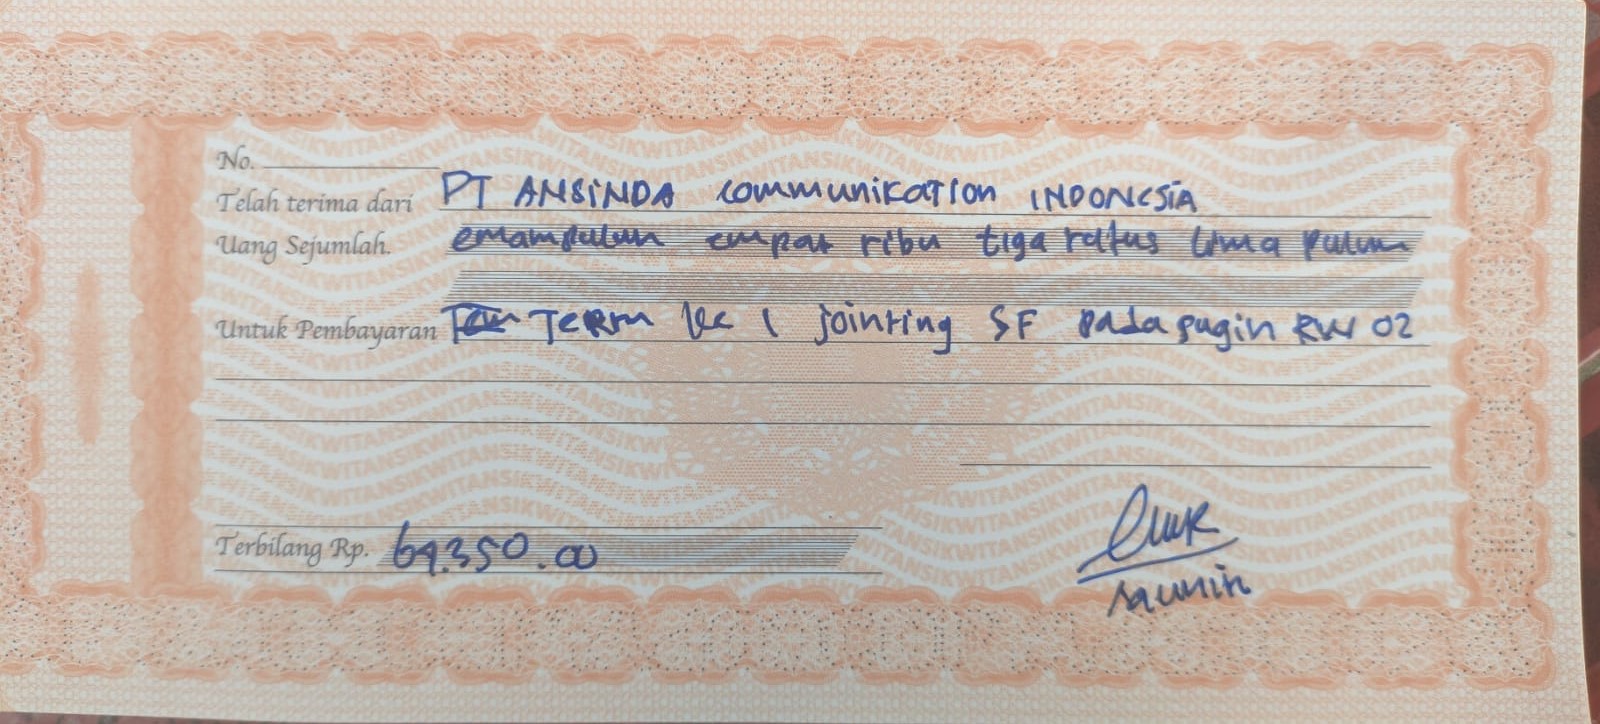 No.
Telah terima dari PT ANSINDA communikation INDONESIA
Uang Sejumlah. emampuluh empat ribu tiga ratus lima puluh
Untuk Pembayaran Term ke 1 jointing SF pada sugin RW 02
Terbilang Rp. 64.350.00